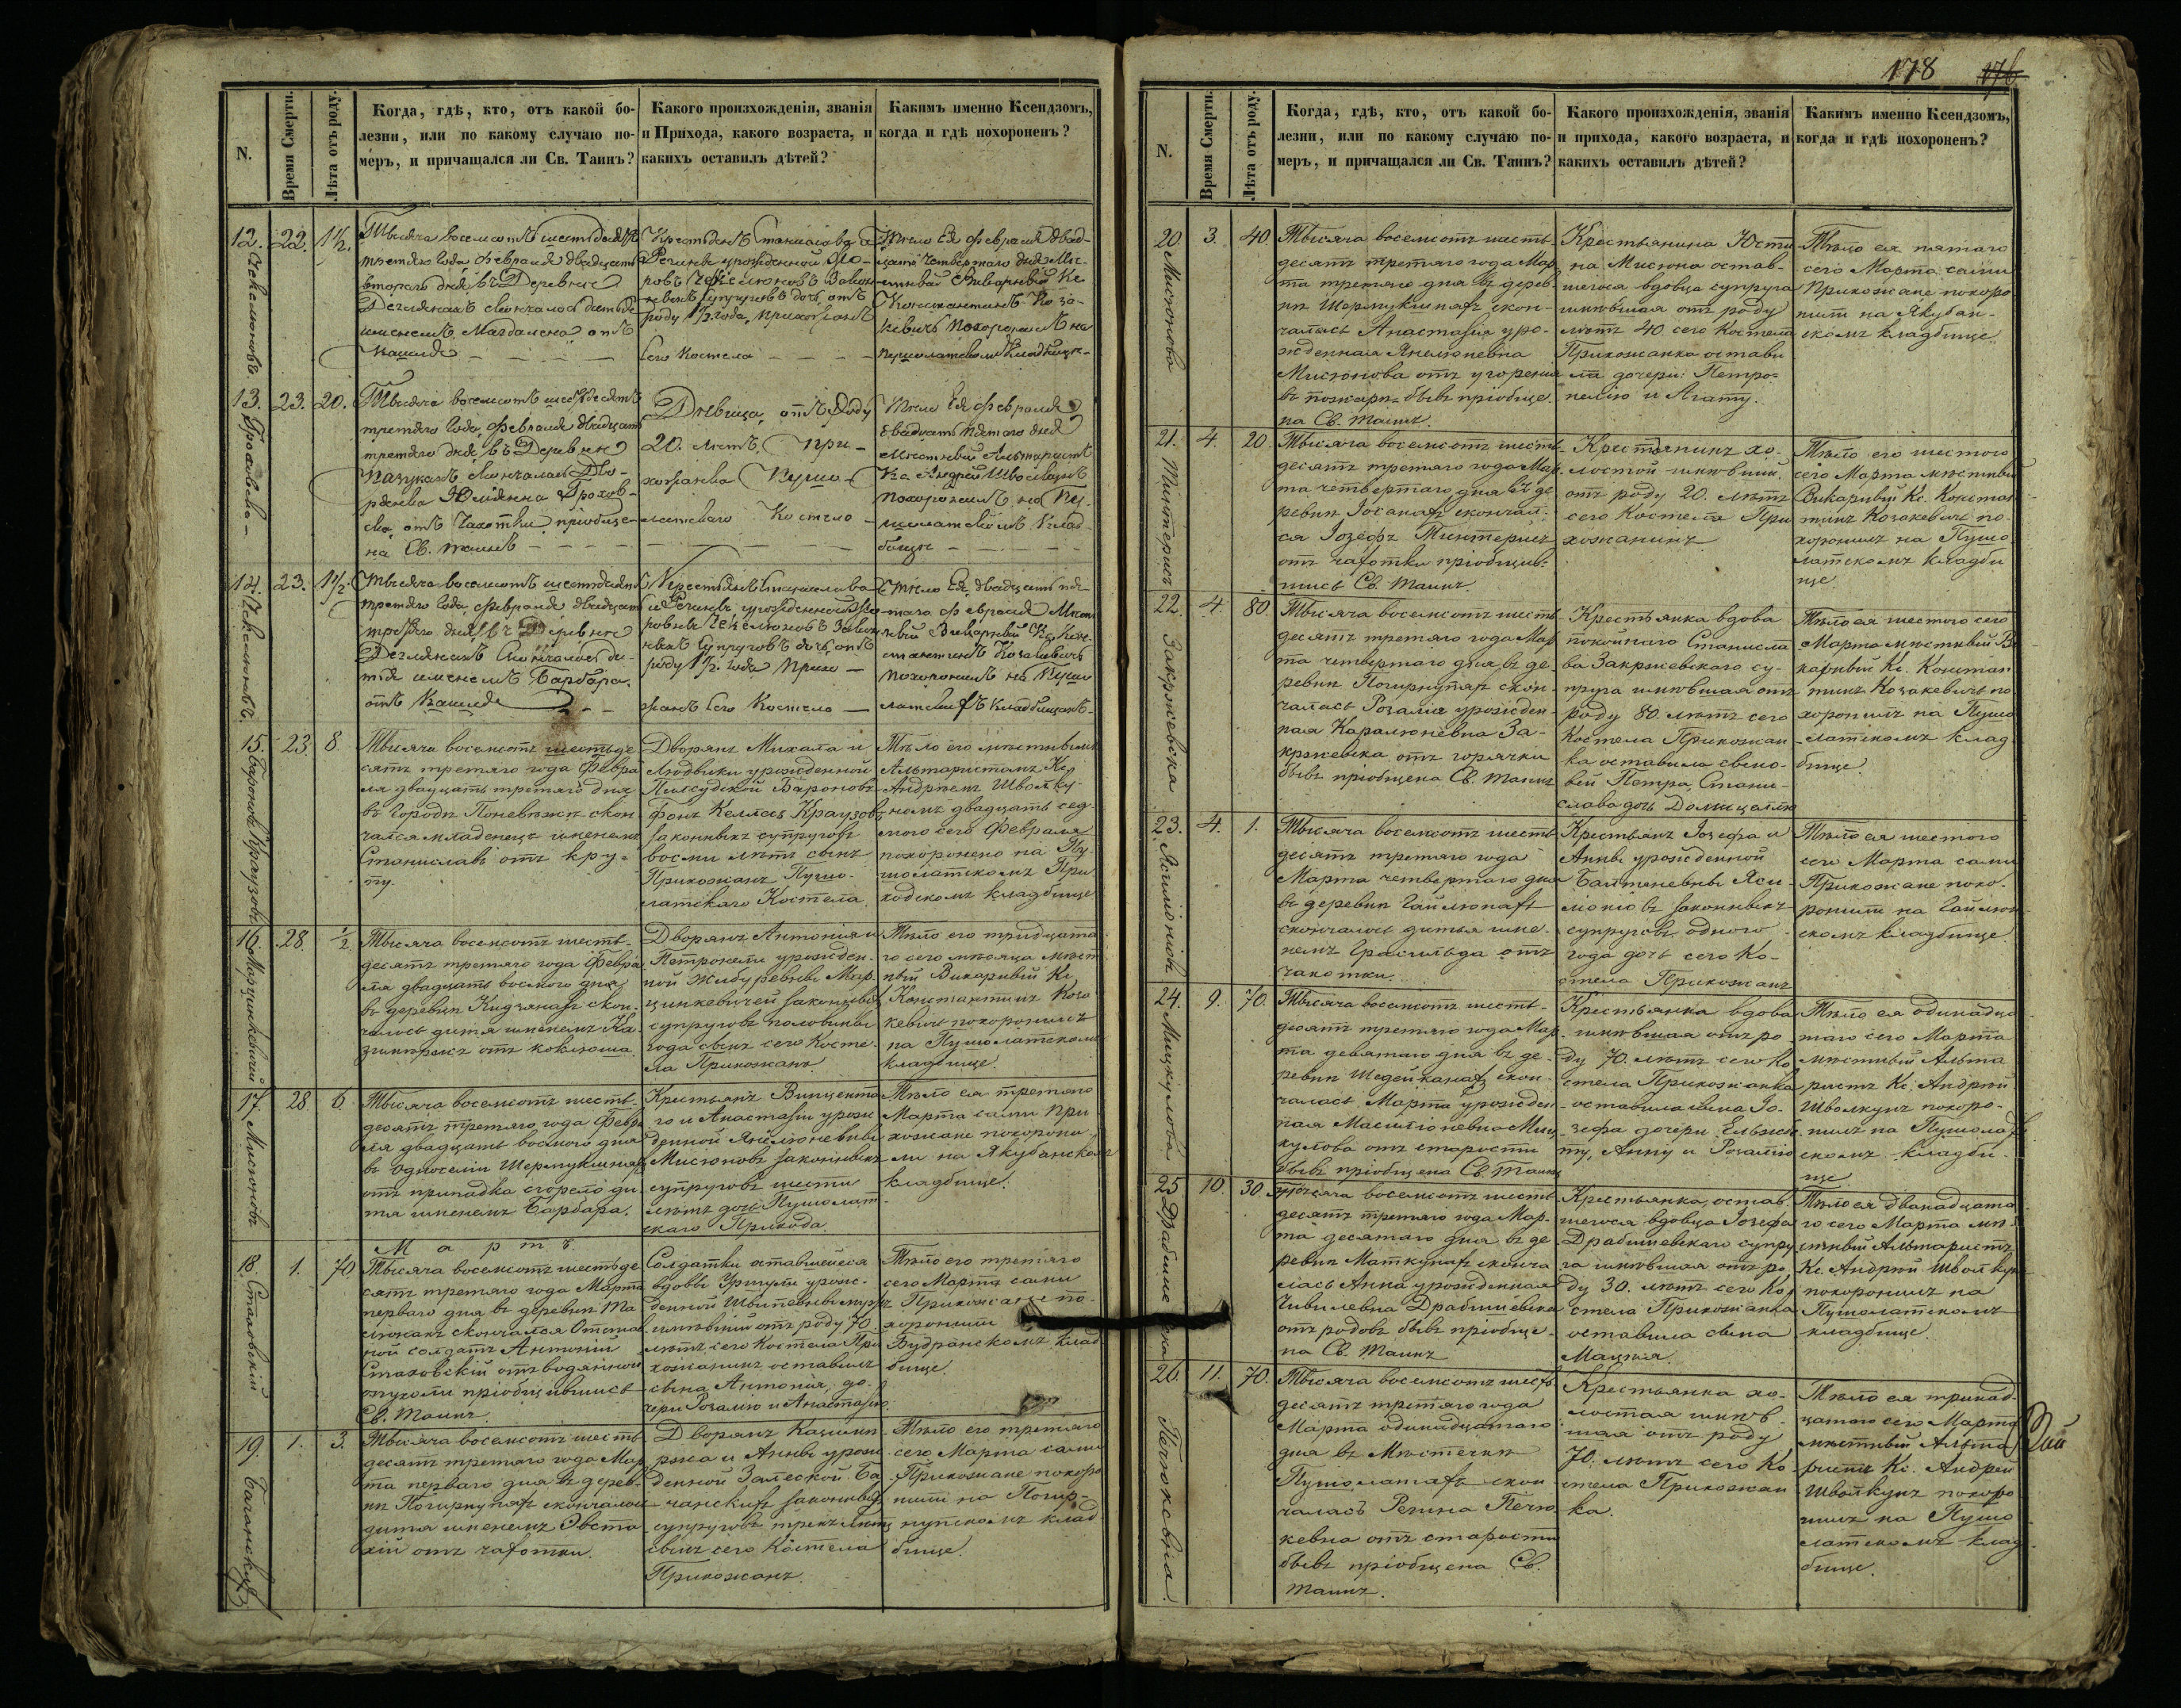 N.
Время Смерти.
Лѣта отъ роду.
Когда, гдѣ, кто, отъ какой бо-
лезни, или по какому случаю по-
меръ, и причащался ли Св. Таинъ?
Какого произхожденія, званія
и Прихода, какого возраста, и
какихъ оставилъ дѣтей?
Какимъ именно Ксендзомъ,
когда и гдѣ похороненъ?
12.
22.
1½.
Тысяча восемсотъ шестьдесятъ
третяго года февраля двадцать
втораго дня въ Деревне
скончалось дитя
именемъ Магдалена отъ
кашля
роду 1½ года, прихожанъ
сего костела
13.
23.
20.
Тысяча восемсотъ шестьдесятъ
третяго года, февраля двадцать
третяго дня, въ Деревне
скончалась Дво-
отъ чахотки приобще-
на Св. таинъ
Девица, отъ роду
20. летъ. При-
хожанка Пушо-
латскаго Костела
Тело Ея февраля
двадцать пятого дня
похоронилъ на Пу-
шолатскомъ клад-
бище
14.
23.
1½.
Тысяча восемсотъ шестдесятъ
третяго года, февраля двадцать
третяго дня, въ Деревне
скончалось ди-
тя именемъ Барбара,
отъ кашля
роду 1½. года Прихо-
жанъ сего Костела
15.
23.
8.
Бароновъ Краузовъ
Тысяча восемсотъ шестьде
сятъ третяго года Февра
ля двадцать третяго дня
въ городѣ Поневѣжѣ скон
чался младенецъ именемъ
Станиславъ отъ кру-
пу.
Дворянъ Михала и
Людвики урожденной
Пилсудской Бароновъ
фонъ Келлесъ Краузовъ
законныхъ супруговъ
восми лѣтъ сынъ
Прихожанъ Пушо-
латскаго Костела.
Тѣло его мѣстнымъ
Альтаристомъ Кс.
Андреемъ Шволку-
номъ двадцать сед-
мого сего Февраля
похоронено на Пу-
шолатскомъ При
ходскомъ кладбище
16.
28.
½
Марцинкевичей
Тысяча восемсотъ шесть-
десятъ третяго года Февра
ля двадцать восмого дня
скон-
чалось дитя именемъ Ка-
зимиръ отъ коклюша.
Дворянъ Антонія и
Петронели урожден-
ной Жибуревны Мар-
цинкевичей законныхъ
супруговъ половины
года сынъ сего Косте-
ла Прихожанъ.
Тѣло его тридцата
го сего мѣсяца мѣст
ный Викарный Кс.
Константинъ Коза
кевичъ похоронилъ
на Пушолатскомъ
кладбище.
17.
28
6.
Мисюновъ
Тысяча восемсотъ шесть-
десятъ третяго года Февра
ля двадцать восмого дня
въ Односеліи Шермукшняхъ
отъ припадка сгорело ди
тя именемъ Барбара.
Крестьянъ Винцента
го и Анастазіи урож
денной Янелюневны
Мисюновъ законныхъ
супруговъ шести
лѣтъ дочь Пушолат-
скаго Прихода
Тѣло ея третяго
Марта сами При
хожане похорони
ли на Якубанскомъ
кладбище.
Мартъ
18.
1.
70
Стаховскій
Тысяча восемсотъ шестьде
сятъ третяго года Марта
перваго дня въ деревнѣ
скончался Отстав
ной солдатъ Антоній
Стаховскій отъ водянной
опухоли пріобщившись
Св. Таинъ.
Солдатки оставшейся
вдовы урож-
денной мужъ
имѣвшій отъ роду 70
лѣтъ сего Костела При
хожанинъ оставилъ
сына Антонія, до-
чери Розалію и Анастазію
Тѣло его третяго
сего Марта сами
Прихожане по-
хоронили
Будранскомъ клад
бище.
19.
1.
3.
Тысяча восемсотъ шесть
десятъ третяго года Мар
та перваго дня въ дерев-
нѣ Погирнупяхъ скончалось
дитя именемъ Эвста
хій отъ чахотки.
Дворянъ Казими
ржа и Анны урож
денной Залеской
законныхъ
супруговъ трехъ лѣтъ
сынъ сего Костела
Прихожанъ.
Тѣло его третяго
сего Марта сами
Прихожане похоро
нили на Погир-
нупскомъ клад
бище.
178
176
N.
Время Смерти.
Лѣта отъ роду.
Когда, гдѣ, кто, отъ какой бо-
лезни, или по какому случаю по-
меръ, и причащался ли Св. Таинъ?
Какого произхожденія, званія
и прихода, какого возраста, и
какихъ оставилъ дѣтей?
Какимъ именно Ксендзомъ,
когда и гдѣ похороненъ?
20.
3.
40.
Мисюнова
Тысяча восемсотъ шесть-
десятъ третяго года Мар
та третяго дня въ дерев-
нѣ Шермукшняхъ скон-
чалась Анастазія уро-
жденная Янелюневна
Мисюнова отъ угорения
въ пожарѣ бывъ пріобще-
на Св. Таинъ.
Крестьянина Юсти
на Мисюна остав-
шегося вдовца супруга
имѣвшая отъ роду
лѣтъ 40. сего Костела
Прихожанка остави
ла дочери: Петро-
нелію и Агату.
Тѣло ея пятаго
сего Марта сами
Прихожане похоро
нили на Якубан-
скомъ кладбище.
21.
4.
20.
Тысяча восемсотъ шесть-
десятъ третяго года Мар
та четвертаго дня въ де
ревнѣ скончал-
ся Іозефъ
отъ чахотки пріобщив-
шись Св. Таинъ.
Крестьянинъ хо-
лостой имѣвшій
отъ роду 20. лѣтъ
сего Костела При
хожанинъ.
Тѣло его шестого
сего Марта мѣстный
Викарный Кс. Констан
тинъ Козакевичъ по-
хоронилъ на Пушо
латскомъ кладби
ще.
22.
4.
80.
Закржевска
Тысяча восемсотъ шесть
десятъ третяго года Мар
та четвертаго дня въ де-
ревнѣ Погирнупяхъ скон-
чалась Розалія урожден-
ная Каралюневна За-
кржевска отъ горячки
бывъ пріобщена Св. Таинъ
Крестьянка вдова
покойнаго Станисла
ва Закржевскаго су-
пруга имѣвшая отъ
роду 80. лѣтъ сего
Костела Прихожан
ка оставила сыно-
вей Петра, Стани-
слава дочь Домицелію
Тѣло ея шестого сего
Марта мѣстный Ви
карный Кс. Констан
тинъ Козакевичъ по
хоронилъ на Пушо
латскомъ клад-
бище.
23.
4.
1.
Тысяча восемсотъ шесть
десятъ третяго года
Марта четвертаго дня
въ деревнѣ Гайлюнахъ
скончалось дитя име-
немъ отъ
чахотки.
Крестьянъ Іозефа и
Анны урожденной
законныхъ
супруговъ одного
года дочь сего Ко-
стела Прихожанъ
Тѣло ея шестого
сего Марта сами
Прихожане похо-
ронили на Гайлюн-
скомъ кладбище.
24.
9.
70.
Мицкулова
Тысяча восемсотъ шесть-
десятъ третяго года Мар-
та девятаго дня въ де-
ревнѣ Шедейканахъ скон
чалась Марта урожден
ная Масилюневна Миц-
кулова отъ старости
бывъ пріобщена Св. Таинъ
Крестьянка вдова
имѣвшая отъ ро
ду 70. лѣтъ сего Ко
стела Прихожанка
оставила сына Іо-
зефа дочери Ельжбе
ту, Анну и Розалію
Тѣло ея одинадца
таго сего Марта
мѣстный Альта
ристъ Кс. Андрей
Шволкунъ похоро-
нилъ на Пушолат
скомъ кладби-
ще.
25.
10.
30.
Тысяча восемсотъ шесть
десятъ третяго года Мар-
та десятаго дня въ де
ревнѣ Маткунахъ сконча
лась Анна урожденная
Чивилевна Драбишевска
отъ родовъ бывъ пріобще-
на Св. Таинъ
Крестьянка остав
шегося вдовца Іозефа
Драбишевскаго супру
га имѣвшая отъ ро
ду 30. лѣтъ сего Ко
стела Прихожанка
оставила сына
Мацѣя.
Тѣло ея дванадцата
го сего Марта мѣ-
стный Альтаристъ
Кс. Андрей Шволкунъ
похоронилъ на
Пушолатскомъ
кладбище.
26.
11.
70.
Тысяча восемсотъ шесть
десятъ третяго года
Марта одинадцатаго
дня въ Мѣстечкѣ
Пушолатахъ скон
чалась Регина
отъ старости
бывъ пріобщена Св.
Таинъ.
Крестьянка хо-
лостая имѣв-
шая отъ роду
70. лѣтъ сего Ко
стела Прихожан
ка.
Тѣло ея тринад-
цатаго сего Марта
мѣстный Альта
ристъ Кс. Андрей
Шволкунъ похоро
нилъ на Пушо
латскомъ клад
бище.